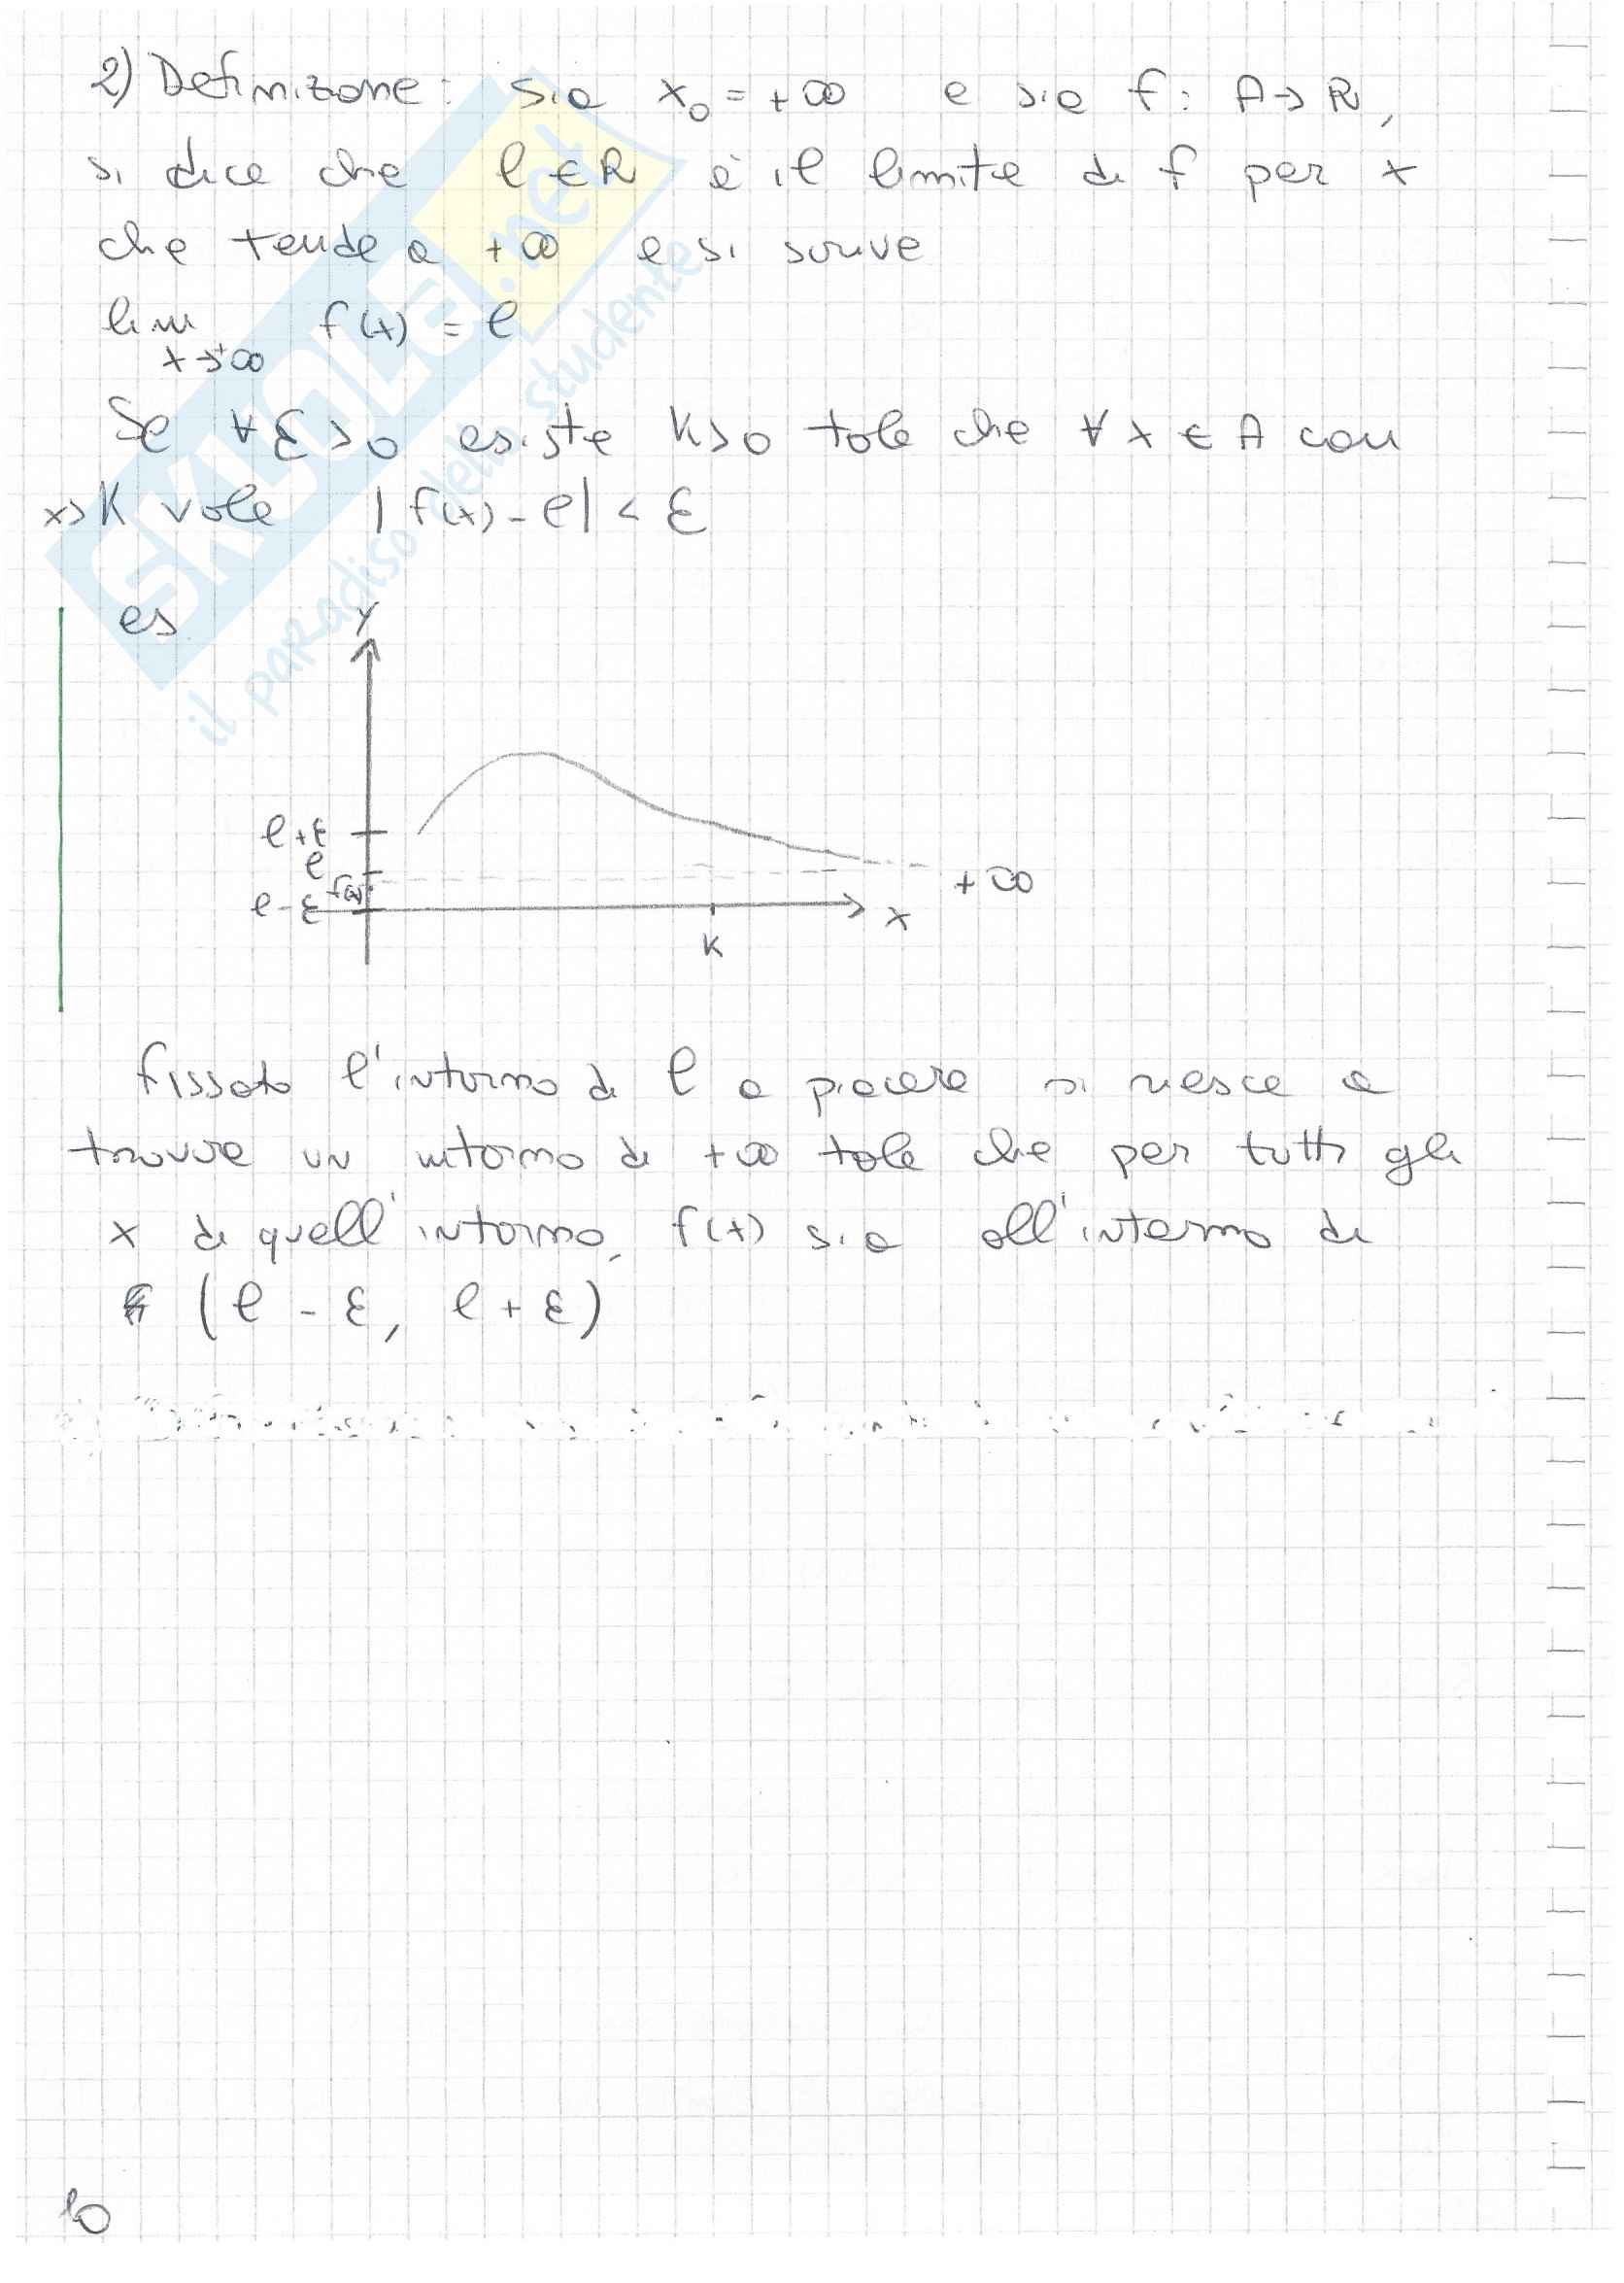 2) Definizione: Sia x₀ = +∞ e sia f: A→R,
si dice che l∈R è il limite di f per x
che tende a +∞ e si scrive
lim f(x) = l
x→+∞
Se ∀ε>0 esiste K>0 tale che ∀x∈A con
x>K vale |f(x)-l| < ε
es
y
l+ε
l
f(x)
l-ε
+∞
x
K
fissato l'intorno di l a piacere si riesce a
trovare un intorno di +∞ tale che per tutti gli
x di quell'intorno, f(x) sia all'interno di
(l-ε, l+ε)
10
SKUOLA.net
il paradiso dello studente